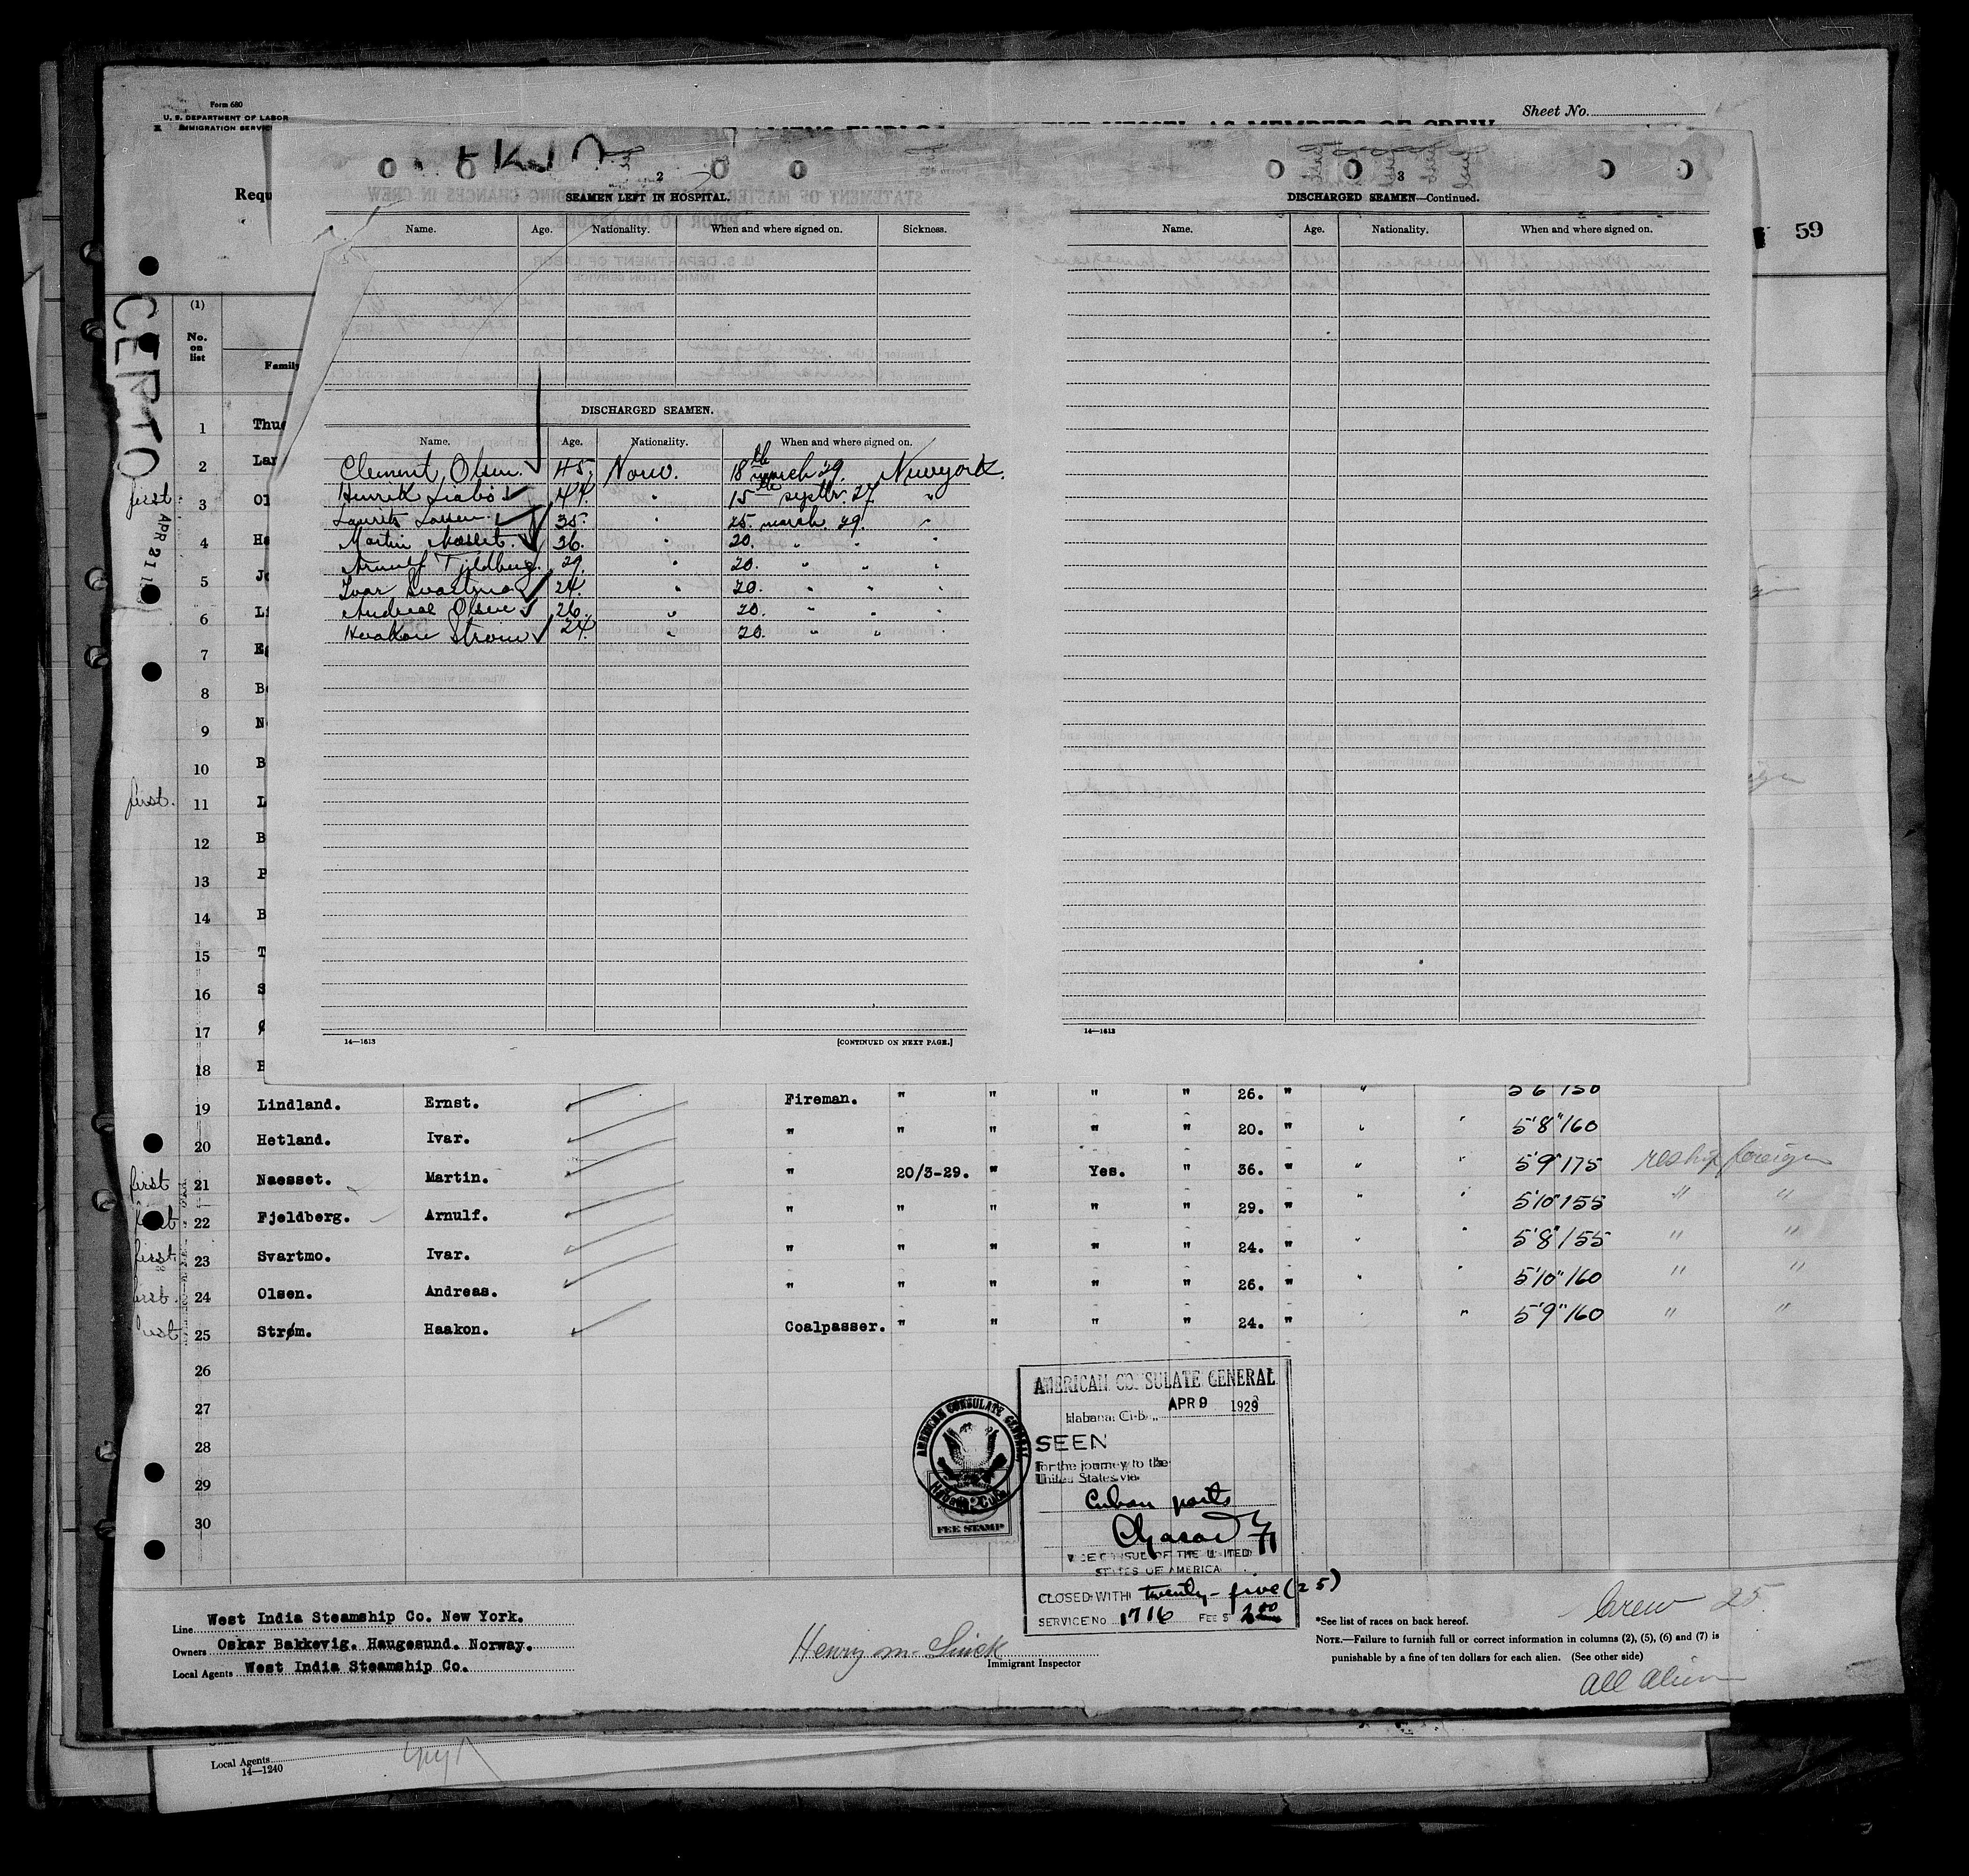 Form 680
U. S. DEPARTMENT OF LABOR
IMMIGRATION SERVICE
Sheet No.
Requ
59
CERTO
2
SEAMEN LEFT IN HOSPITAL.
Name. Age. Nationality. When and where signed on. Sickness.
DISCHARGED SEAMEN.
Name. Age. Nationality. When and where signed on.
Clement Olsen. 45. Norw. 18th march 29. Newyork.
Henrik Liabö 44. " 15th septbr. 27 "
Laurits Larsen. 35. " 25. march. 29. "
Martin Næsset. 36. " 20. " " "
Arnulf Fjeldberg. 29. " 20. " " "
Ivar Svartmo 24. " 20. " " "
Andreas Olsen 26. " 20. " " "
Haakon Strøm 24. " 20. " " "
14—1613
[CONTINUED ON NEXT PAGE.]
3
DISCHARGED SEAMEN—Continued.
Name. Age. Nationality. When and where signed on.
14—1613
(1)
No. on list
Family
1 Thu
2 Lar
first 3 Ol
APR 21
4 He
5 Jo
6 Li
7 Eg
8 Be
9 N
10 B
first. 11 L
12 B
13 F
14 B
15 T
16 S
17 Ø
18 B 5'6 150
19 Lindland. Ernst. Fireman. " " " " 26. " "
20 Hetland. Ivar. " " " " " 20. " " " 5'8" 160
first 21 Naesset. Martin. " 20/3-29. " Yes. " 36. " " " 5'9" 175 reship foreign
first 22 Fjeldberg. Arnulf. " " " " " 29. " " " 5'10" 155 " "
first 23 Svartmo. Ivar. " " " " " 24. " " " 5'8" 155 " "
first 24 Olsen. Andreas. " " " " " 26. " " " 5'10" 160 " "
first 25 Strøm. Haakon. Coalpasser. " " " " 24. " " " 5'9" 160 " "
26
27
28
29
30
AMERICAN CONSULATE GENERAL
Habana Cuba
2
FEE STAMP
AMERICAN CONSULATE GENERAL
Habana, Cuba, APR 9 1929
SEEN
For the journey to the
United States via
Cuban ports
VICE CONSUL OF THE UNITED
STATES OF AMERICA
CLOSED WITH twenty-five (25)
SERVICE No 1716 FEE $ 2.00
Line West India Steamship Co. New York.
Owners Oskar Bakkevig. Haugesund. Norway.
Local Agents West India Steamship Co.
Immigrant Inspector
*See list of races on back hereof.
NOTE.—Failure to furnish full or correct information in columns (2), (5), (6) and (7) is
punishable by a fine of ten dollars for each alien. (See other side)
Crew 25
all alien
Local Agents
14—1240